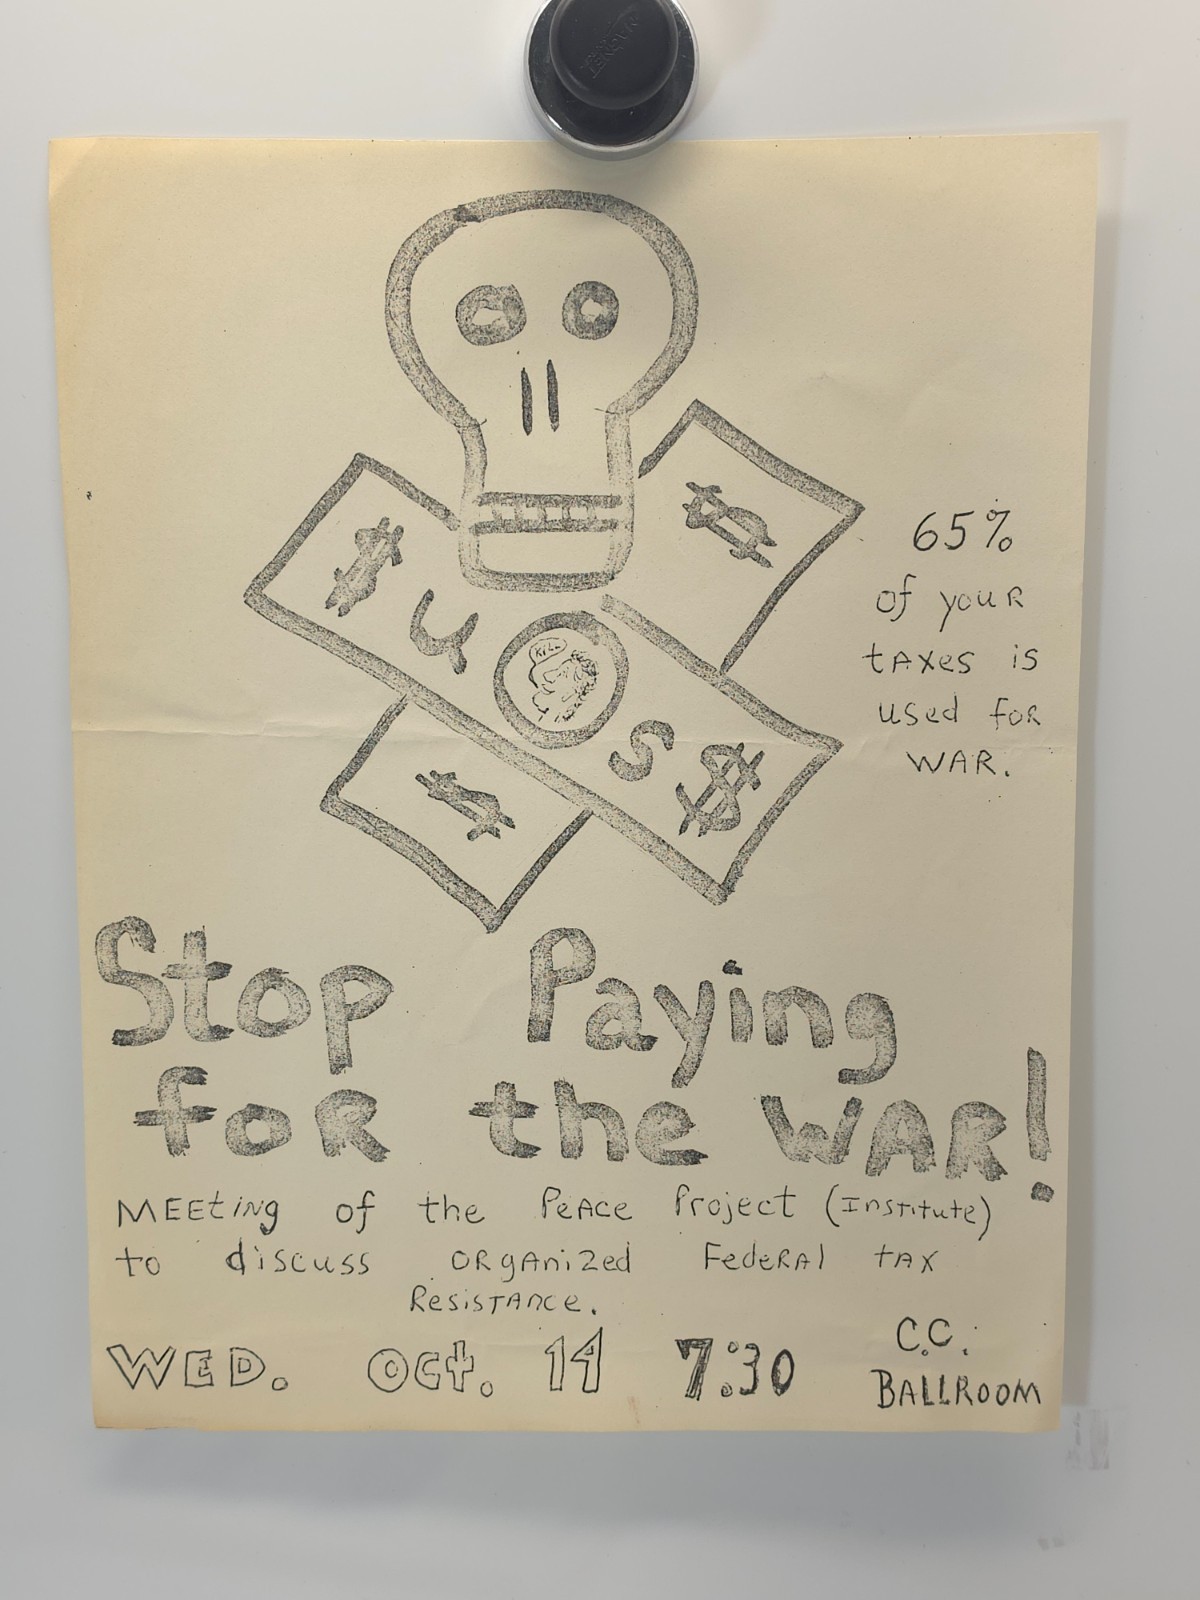 $
$ U KILL S $
$
65%
of your
tAxes is
used for
WAR.
Stop Paying
for the WAR!
MEEtiNg of the PeAce Project (Institute)
to discuss ORgAnized FedeRAl tAX
ResisTANce.
WED. Oct. 14 7:30 C.C.
BALLROOM